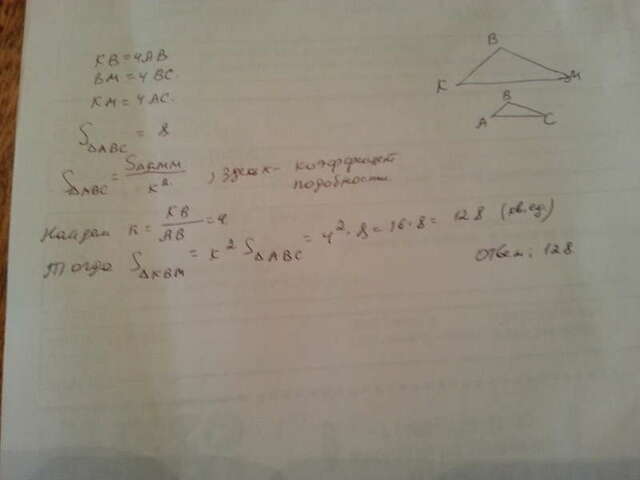 KB = 4AB
BM = 4BC.
KM = 4AC.
S△ABC = 8
S△ABC = S△KMM / K², здесь K - коэффициент
подобности
Найдем K = KB / AB = 4
Тогда S△KBM = K² S△ABC = 4² · 8 = 16 · 8 = 128 (кв.ед)
Ответ: 128
B
K
M
B
A
C